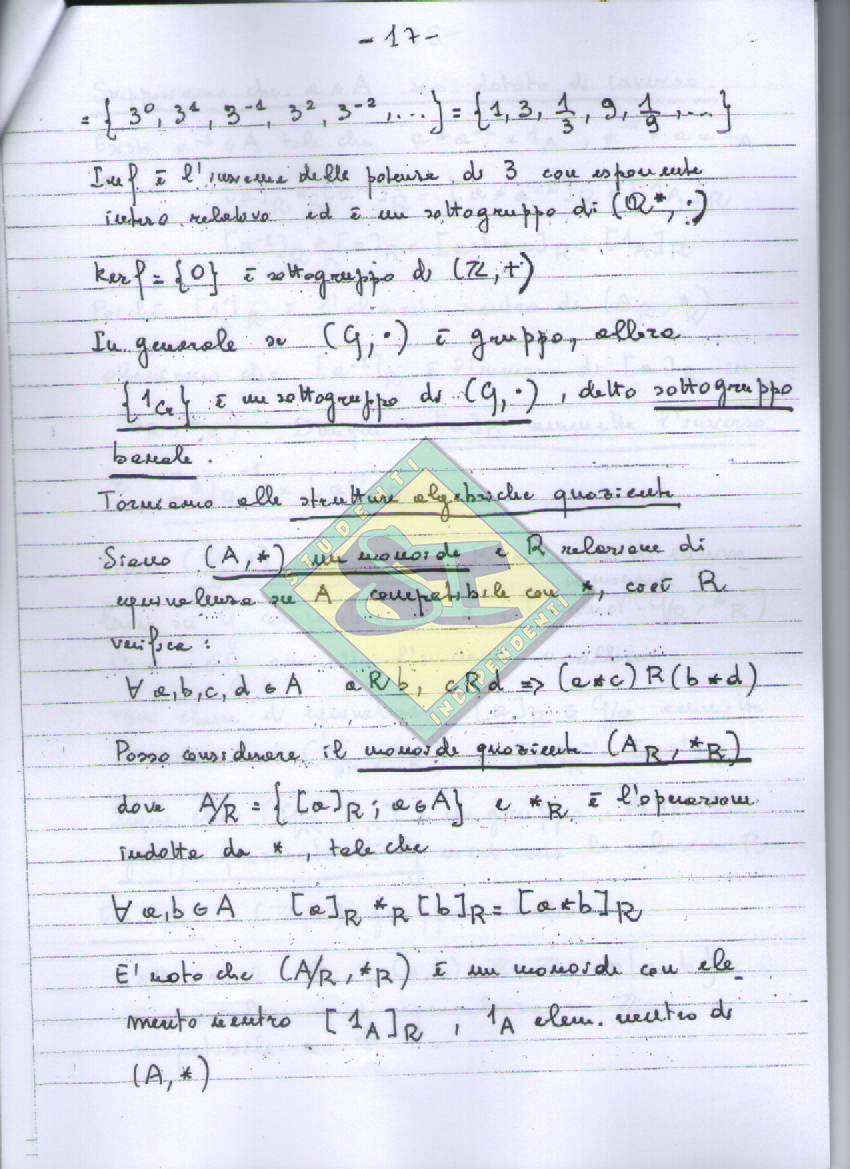 - 17 -
= { 3⁰, 3¹, 3⁻¹, 3², 3⁻², ... } = { 1, 3, 1/3, 9, 1/9, ... }
Imf è l'insieme delle potenze di 3 con esponente
intero relativo ed è un sottogruppo di (Q*, ·)
Kerf = {0} è sottogruppo di (ℤ, +)
In generale se (G, ·) è gruppo, allora
{1_G} è un sottogruppo di (G, ·), detto sottogruppo
banale.
Torniamo alle strutture algebriche quoziente
Siano (A, *) un monoide e R relazione di
equivalenza su A compatibile con *, cioè R
verifica:
∀ a,b,c,d ∈ A aRb, cRd => (a*c)R(b*d)
Posso considerare il monoide quoziente (A_R, *_R)
dove A/R = { [a]_R ; a∈A } e *_R è l'operazione
indotta da *, tale che
∀ a,b ∈ A [a]_R *_R [b]_R = [a*b]_R
E' noto che (A/R, *_R) è un monoide con ele-
mento neutro [1_A]_R, 1_A elem. neutro di
(A, *)
STUDENTI
INDIPENDENTI